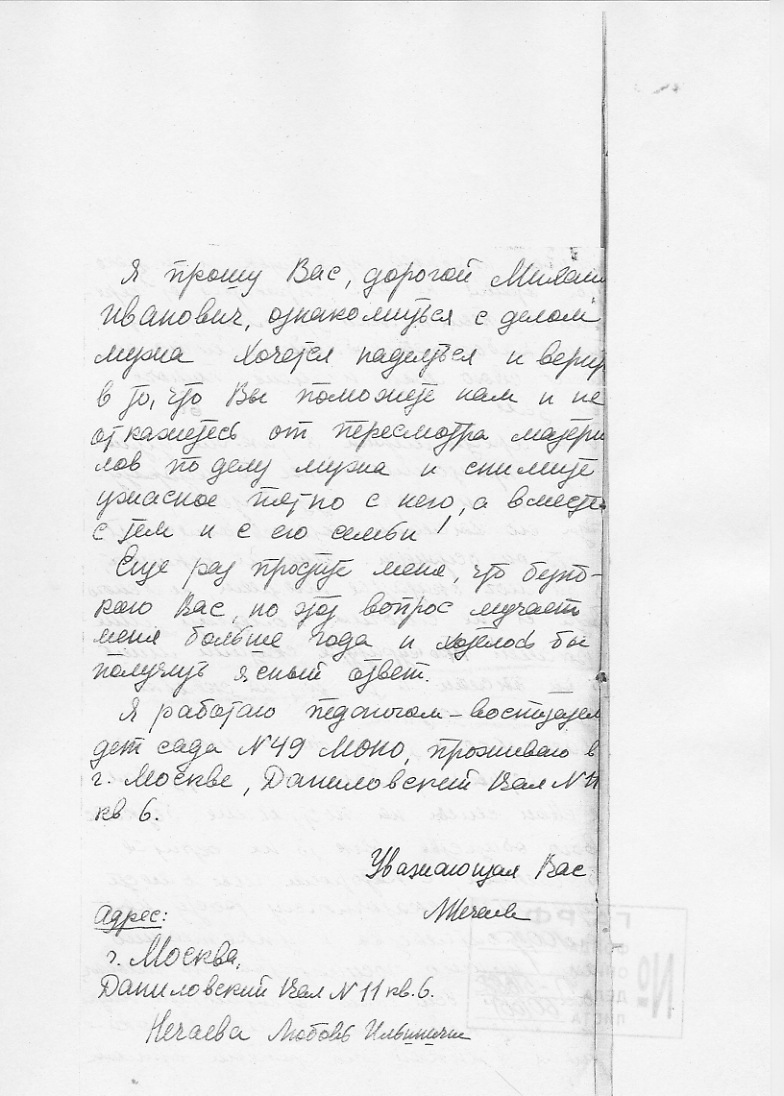 Я прошу Вас, дорогой Михаил
Иванович, ознакомиться с делом
мужа Хочется надеяться и верить
в то, что Вы поможете нам и не
откажетесь от пересмотра матери
лов по делу мужа и снимите
ужасное пятно с него, а вместе
с тем и с его семьи!
Еще раз простите меня, что беспо-
кою Вас, но этот вопрос мучает
меня больше года и хотелось бы
получить ясный ответ.
Я работаю педагогом-воспитателем
дет сада N 49 МОНО, проживаю в
г. Москве, Даниловский Вал N 11
кв 6.
Уважающая Вас
ЛНечаева
Адрес:
г. Москва,
Даниловский Вал N 11 кв. 6.
Нечаева Любовь Ильинична
ГАРФ
№
ДЕЛА
ЛИСТА